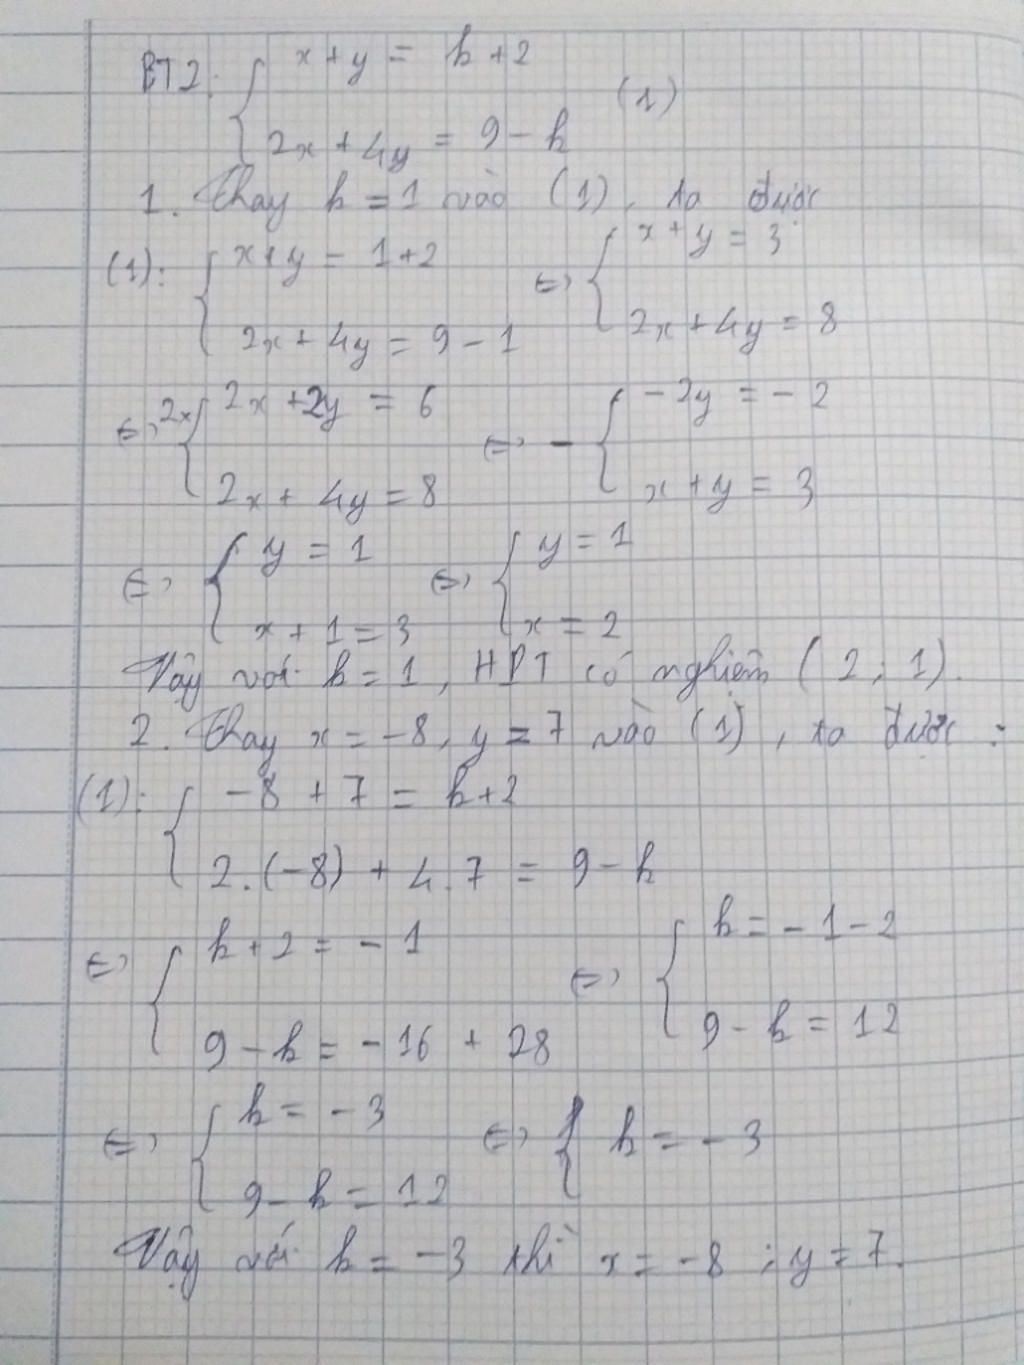 BT2: { x + y = k + 2
2x + 4y = 9 - k (1)
1. Thay k = 1 vào (1), ta được
(1): { x + y = 1 + 2 ⇔ { x + y = 3
2x + 4y = 9 - 1 2x + 4y = 8
⇔ 2x { 2x + 2y = 6 ⇔ - { -2y = -2
2x + 4y = 8 x + y = 3
⇔ { y = 1 ⇔ { y = 1
x + 1 = 3 x = 2
Vậy với k = 1, HPT có nghiệm (2; 1).
2. Thay x = -8, y = 7 vào (1), ta được:
(1): { -8 + 7 = k + 2
2.(-8) + 4.7 = 9 - k
⇔ { k + 2 = -1 ⇔ { k = -1 - 2
9 - k = -16 + 28 9 - k = 12
⇔ { k = -3 ⇔ { k = -3
9 - k = 12
Vậy với k = -3 thì x = -8; y = 7.